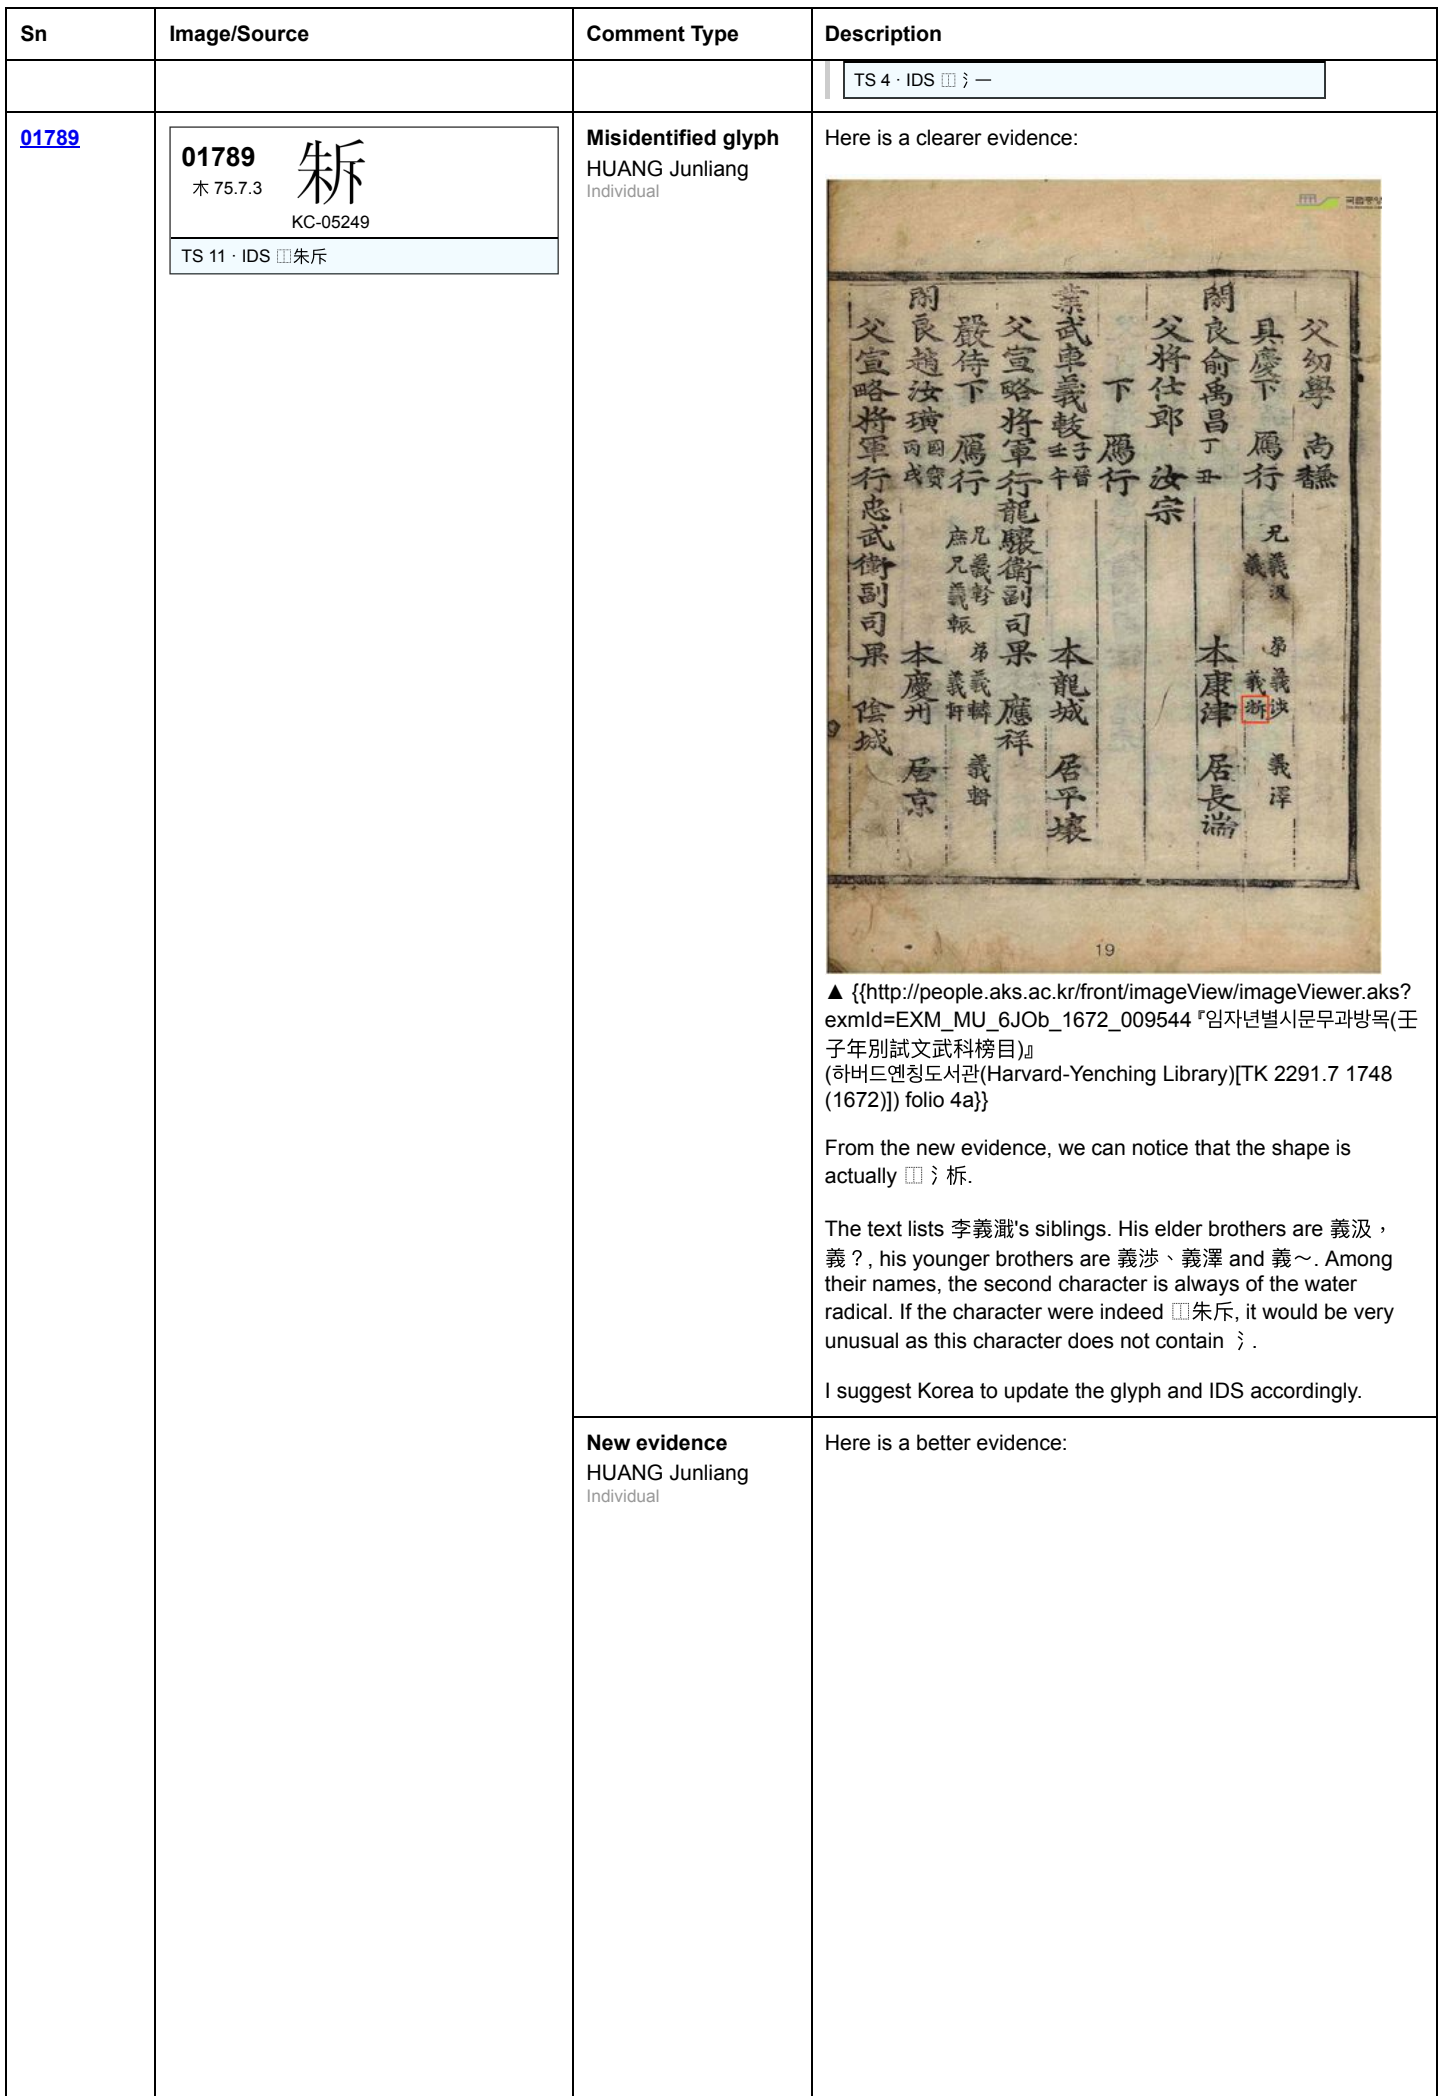 Sn Image/Source Comment Type Description
TS 4 · IDS ⿰氵一
01789
01789
木 75.7.3
KC-05249
TS 11 · IDS ⿰朱斥
Misidentified glyph
HUANG Junliang
Individual
Here is a clearer evidence:
父幼學 尚
具慶下 鴈行 兄義汲 義 弟義涉 義 義澤
閑良俞禹昌丁丑 本康津 居長湍
父將仕郎 汝宗
下 鴈行
業武車義輚子晉壬午 本龍城 居平壤
父宣略將軍行龍驤衛副司果 應祥
嚴侍下 鴈行 庶兄義轸 弟義轔 義軒
閑良趙汝璜國寶丙戌 本慶州 居京
父宣略將軍行忠武衛副司果 陰城
19
▲ {{http://people.aks.ac.kr/front/imageView/imageViewer.aks?
exmId=EXM_MU_6JOb_1672_009544『임자년별시문무과방목(壬
子年別試文武科榜目)』
(하버드옌칭도서관(Harvard-Yenching Library)[TK 2291.7 1748
(1672)]) folio 4a}}
From the new evidence, we can notice that the shape is
actually ⿰氵析.
The text lists 李義濈's siblings. His elder brothers are 義汲，
義？, his younger brothers are 義涉、義澤 and 義～. Among
their names, the second character is always of the water
radical. If the character were indeed ⿰朱斥, it would be very
unusual as this character does not contain 氵.
I suggest Korea to update the glyph and IDS accordingly.
New evidence
HUANG Junliang
Individual
Here is a better evidence: